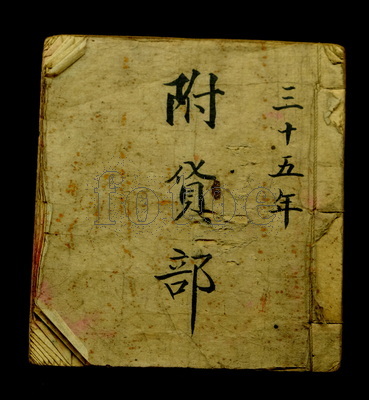 三十五年
附貨部
fotoe